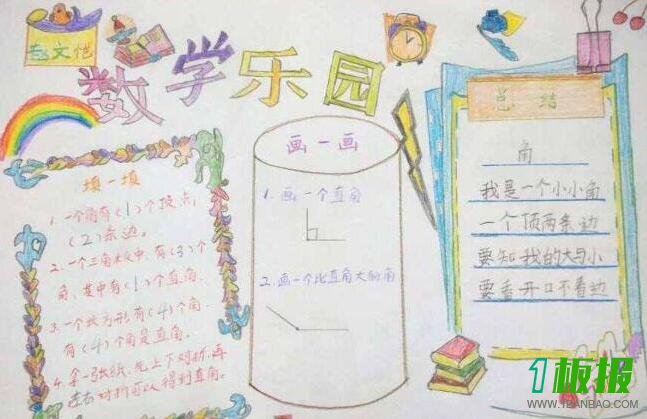 赵文恺
数学乐园
填一填
1.一个角有(1)个顶点,
(2)条边。
2.一个三角板中,有(3)个
角,其中有(1)个直角.
3.一个长方形,有(4)个角.
有(4)个角是直角。
4.拿一张纸,先上下对折,再
左右对折可以得到直角。
画一画
1.画一个直角
2.画一个比直角大的角
总结
角
我是一个小小角
一个顶两条边
要知我的大与小
要看开口不看边
1板报
WWW.1BANBAO.COM